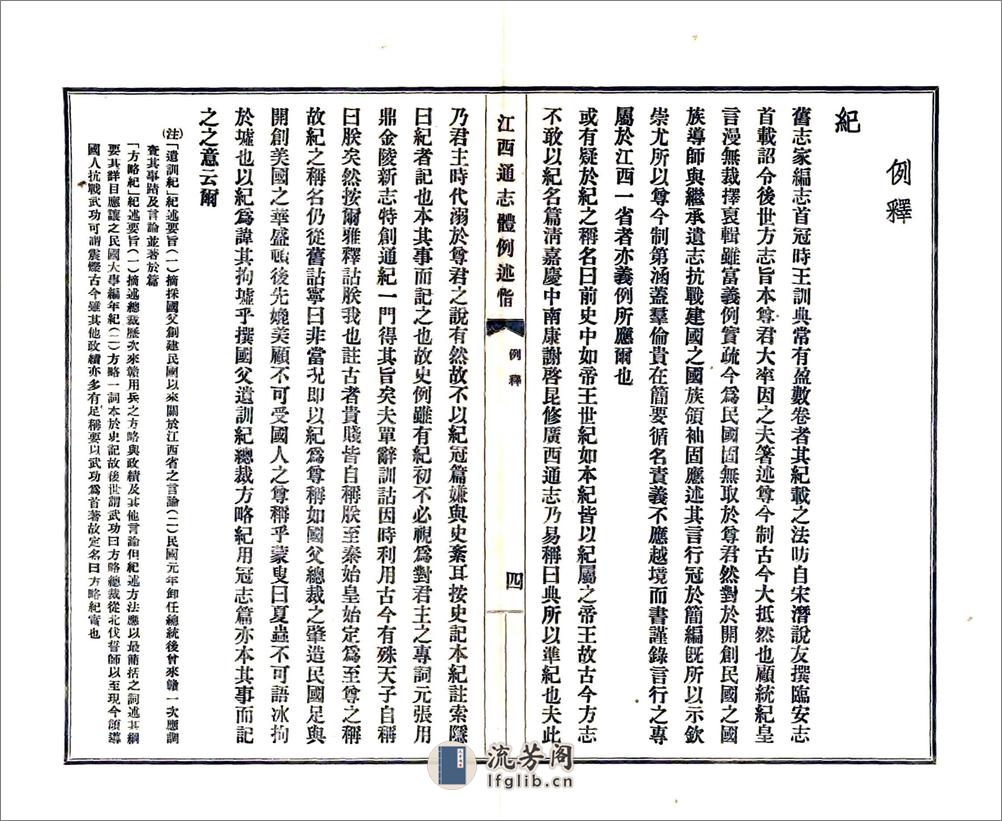 例釋
紀
舊志家編志首冠時王訓典常有盈數卷者其紀載之法昉自宋潛說友撰臨安志
首載詔令後世方志旨本尊君大率因之夫箸述尊今制古今大抵然也顧統紀皇
言漫無裁擇裒輯雖富義例實疏今爲民國固無取於尊君然對於開創民國之國
族導師與繼承遺志抗戰建國之國族領袖固應述其言行冠於簡編旣所以示欽
崇尤所以尊今制第涵蓋羣倫貴在簡要循名責義不應越境而書謹錄言行之專
屬於江西一省者亦義例所應爾也
或有疑於紀之稱名曰前史中如帝王世紀如本紀皆以紀屬之帝王故古今方志
不敢以紀名篇淸嘉慶中南康謝啓昆修廣西通志乃易稱曰典所以準紀也夫此
江西通志體例述恉
例釋
四
乃君主時代溺於尊君之說有然故不以紀冠篇嫌與史紊耳按史記本紀註索隱
曰紀者記也本其事而記之也故史例雖有紀初不必視爲對君主之專詞元張用
鼎金陵新志特創通紀一門得其旨矣夫單辭訓詁因時利用古今有殊天子自稱
曰朕矣然按爾雅釋詁朕我也註古者貴賤皆自稱朕至秦始皇始定爲至尊之稱
故紀之稱名仍從舊詁寧曰非當况即以紀爲尊稱如國父總裁之肇造民國足與
開創美國之華盛頓後先媲美顧不可受國人之尊稱乎蒙叟曰夏蟲不可語冰拘
於墟也以紀爲諱其拘墟乎撰國父遺訓紀總裁方略紀用冠志篇亦本其事而記
之之意云爾
(注)「遺訓紀」紀述要旨(一)摘採國父創建民國以來關於江西省之言論(二)民國元年卸任總統後曾來贛一次應調
查其事蹟及言論並著於篇
「方略紀」紀述要旨(一)摘述總裁歷次來贛用兵之方略與政績及其他言論但紀述方法應以最簡括之詞述其綱
要其詳目應讓之民國大事編年紀(二)方略一詞本於史記故後世謂武功曰方略總裁從北伐誓師以至現今領導
國人抗戰武功可謂震爍古今雖其他政績亦多有足稱要以武功爲首著故定名曰方略紀寘也
流芳阁
lfglib.cn